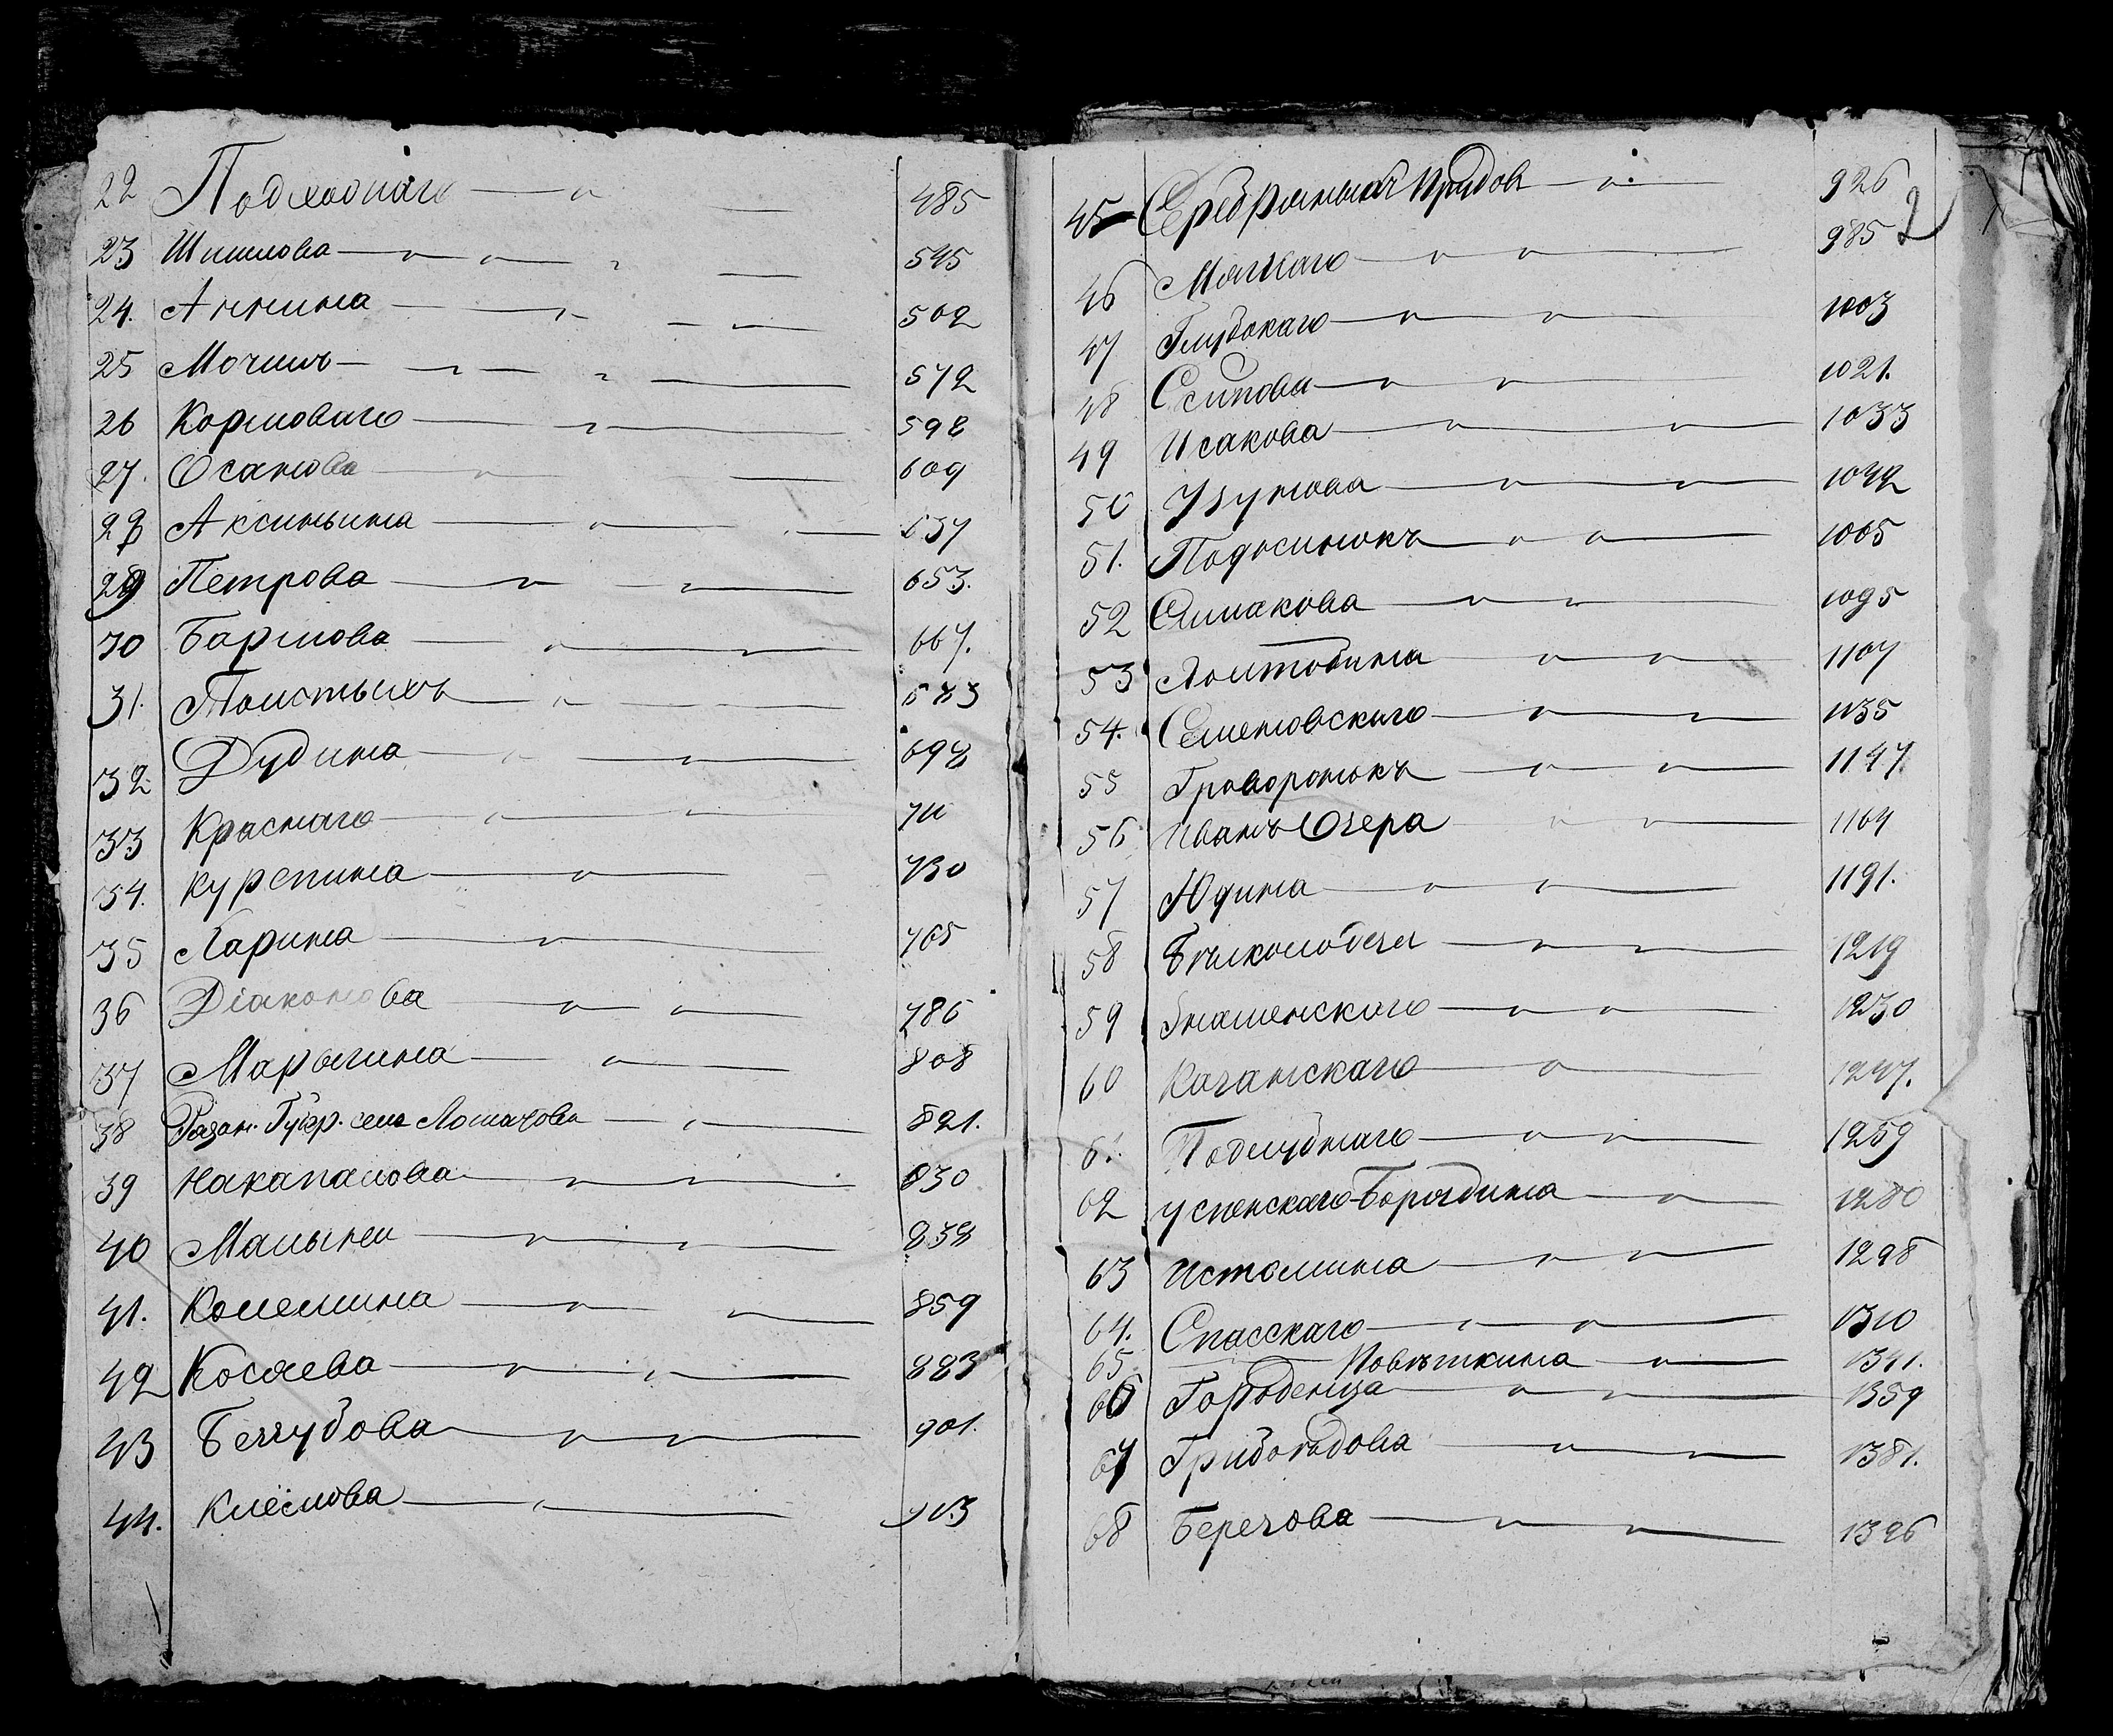 22 Подхоонаго — " — 485
23 Шишлова — " — " — 545
24. Аннина — " — 562
25 Мочилъ — " — " — 572
26 Кормоваго — " — 598
27. Осанова — " — 609
28 Аксиньина — " — 637
29 Петрова — " — " — 653.
30 Бармова — " — " — 667.
31. Толстыхъ — " — 683
32. Дубина — " — " — 698
33 Краснаго — " — " — 711
34. Курапина — " — 730
35 Ларина — " — 765
36 Діаконова — " — " — 786
37 Марыгина — " — 808
38 Рязан. Губер. села Ломазова — " — 821.
39 Накапалова — " — " — 830
40 Малынки — " — " — 838
41. Колемина — " — " — 859
42 Косяева — " — " — 883
43 Беззубова — " — " — 901.
44. Клёсмова — " — 913
2
45 Серебряныхъ Прудовъ — " — 926
46 Мягкаго — " — " — 985
47 Глубокаго — " — " — 1003
48 Осипова — " — " — 1021.
49 Исакова — " — " — 1033
50 Узунова — " — " — 1042
51. Подосинокъ — " — " — 1065
52 Ешмакова — " — " — 1095
53 Лоштобина — " — " — 1107
54. Семеновскаго — " — " — 1135
55 Граворонокъ — " — " — 1147.
56 Иванъ Озера — " — " — 1164
57 Юдина — " — " — 1191.
58 Бѣлколодезя — " — " — 1219
59 Знаменскаго — " — " — 1230
60 Казанскаго — " — 1247.
61. Подлубнаго — " — " — 1259
62 Успенскаго-Бородина — " — 1280
63 Истомина — " — " — 1298
64. Спасскаго — " — " — 1310
65 — Повѣткина — " — 1341.
66 Городенца — " — " — 1359
67 Грибоѣдова — " — " — 1381.
68 Березова — " — " — 1396